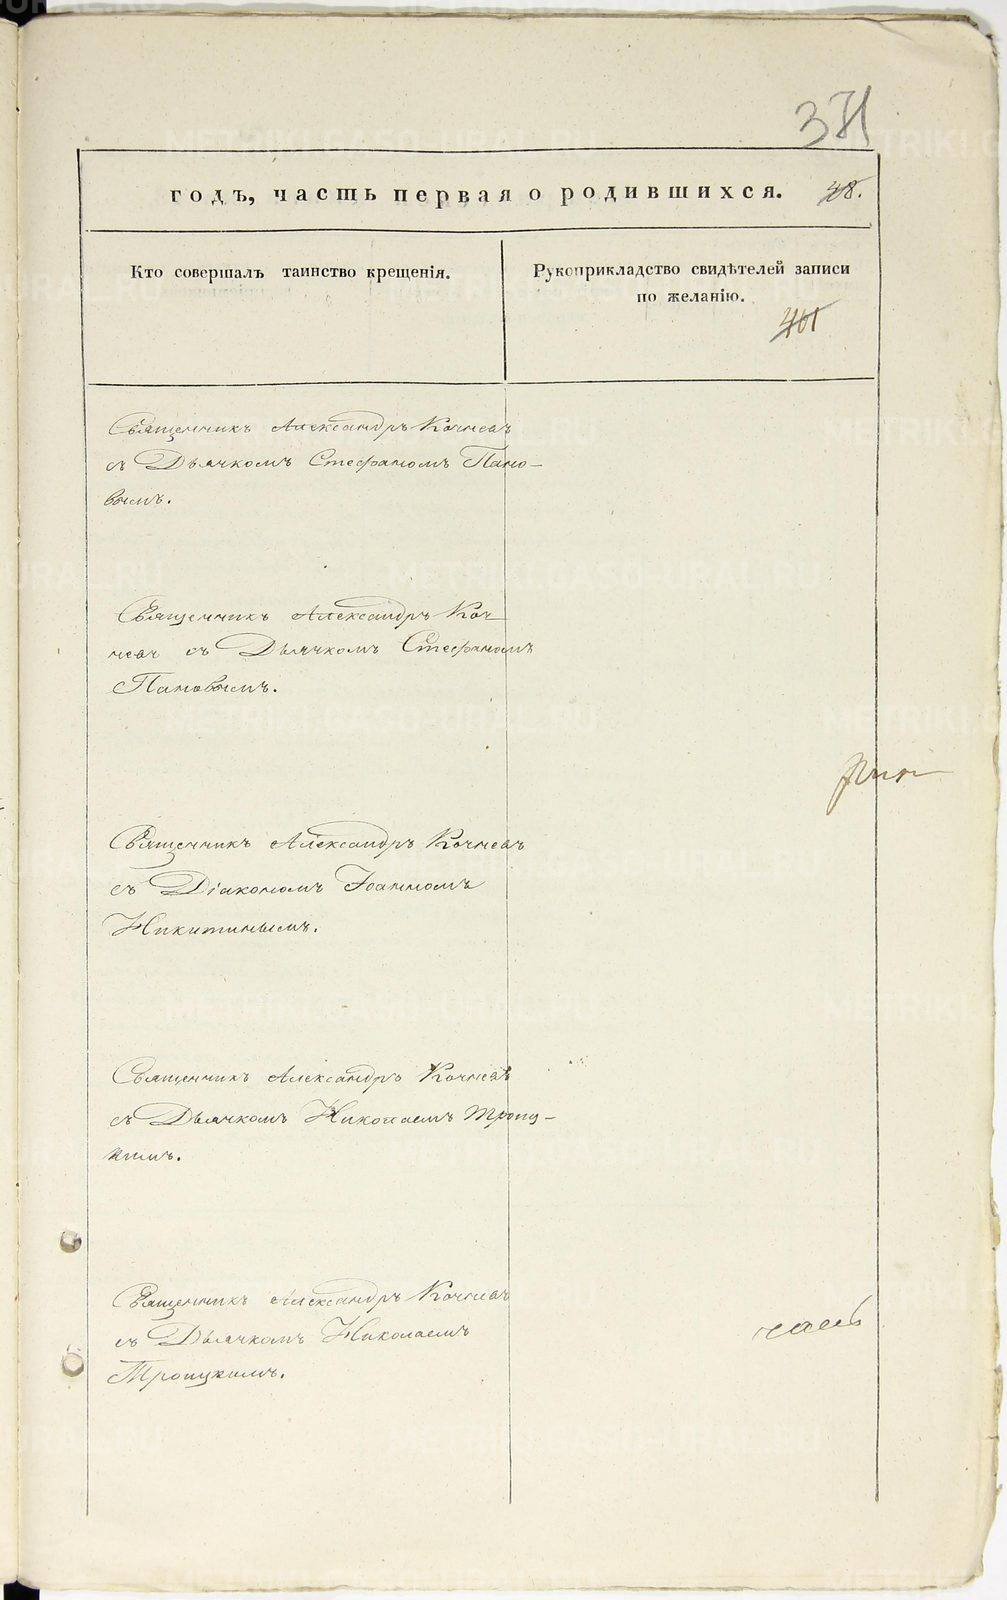 371
годъ, часть первая о родившихся. 48.
Кто совершалъ таинство крещенія.
Рукоприкладство свидѣтелей записи
по желанію.
401
Священникъ Александръ Кочневъ
съ Дьячкомъ Стефаномъ Пано-
вымъ.
Священникъ Александръ Коч-
невъ съ Дьячкомъ Стефаномъ
Пановымъ.
Священникъ Александръ Кочневъ
съ Діакономъ Іоанномъ
Никитинымъ.
Священникъ Александръ Кочневъ
съ Дьячкомъ Николаемъ Троиц-
кимъ.
Священникъ Александръ Кочневъ
съ Дьячкомъ Николаемъ
Троицкимъ.
METRIKI.GASO-URAL.RU